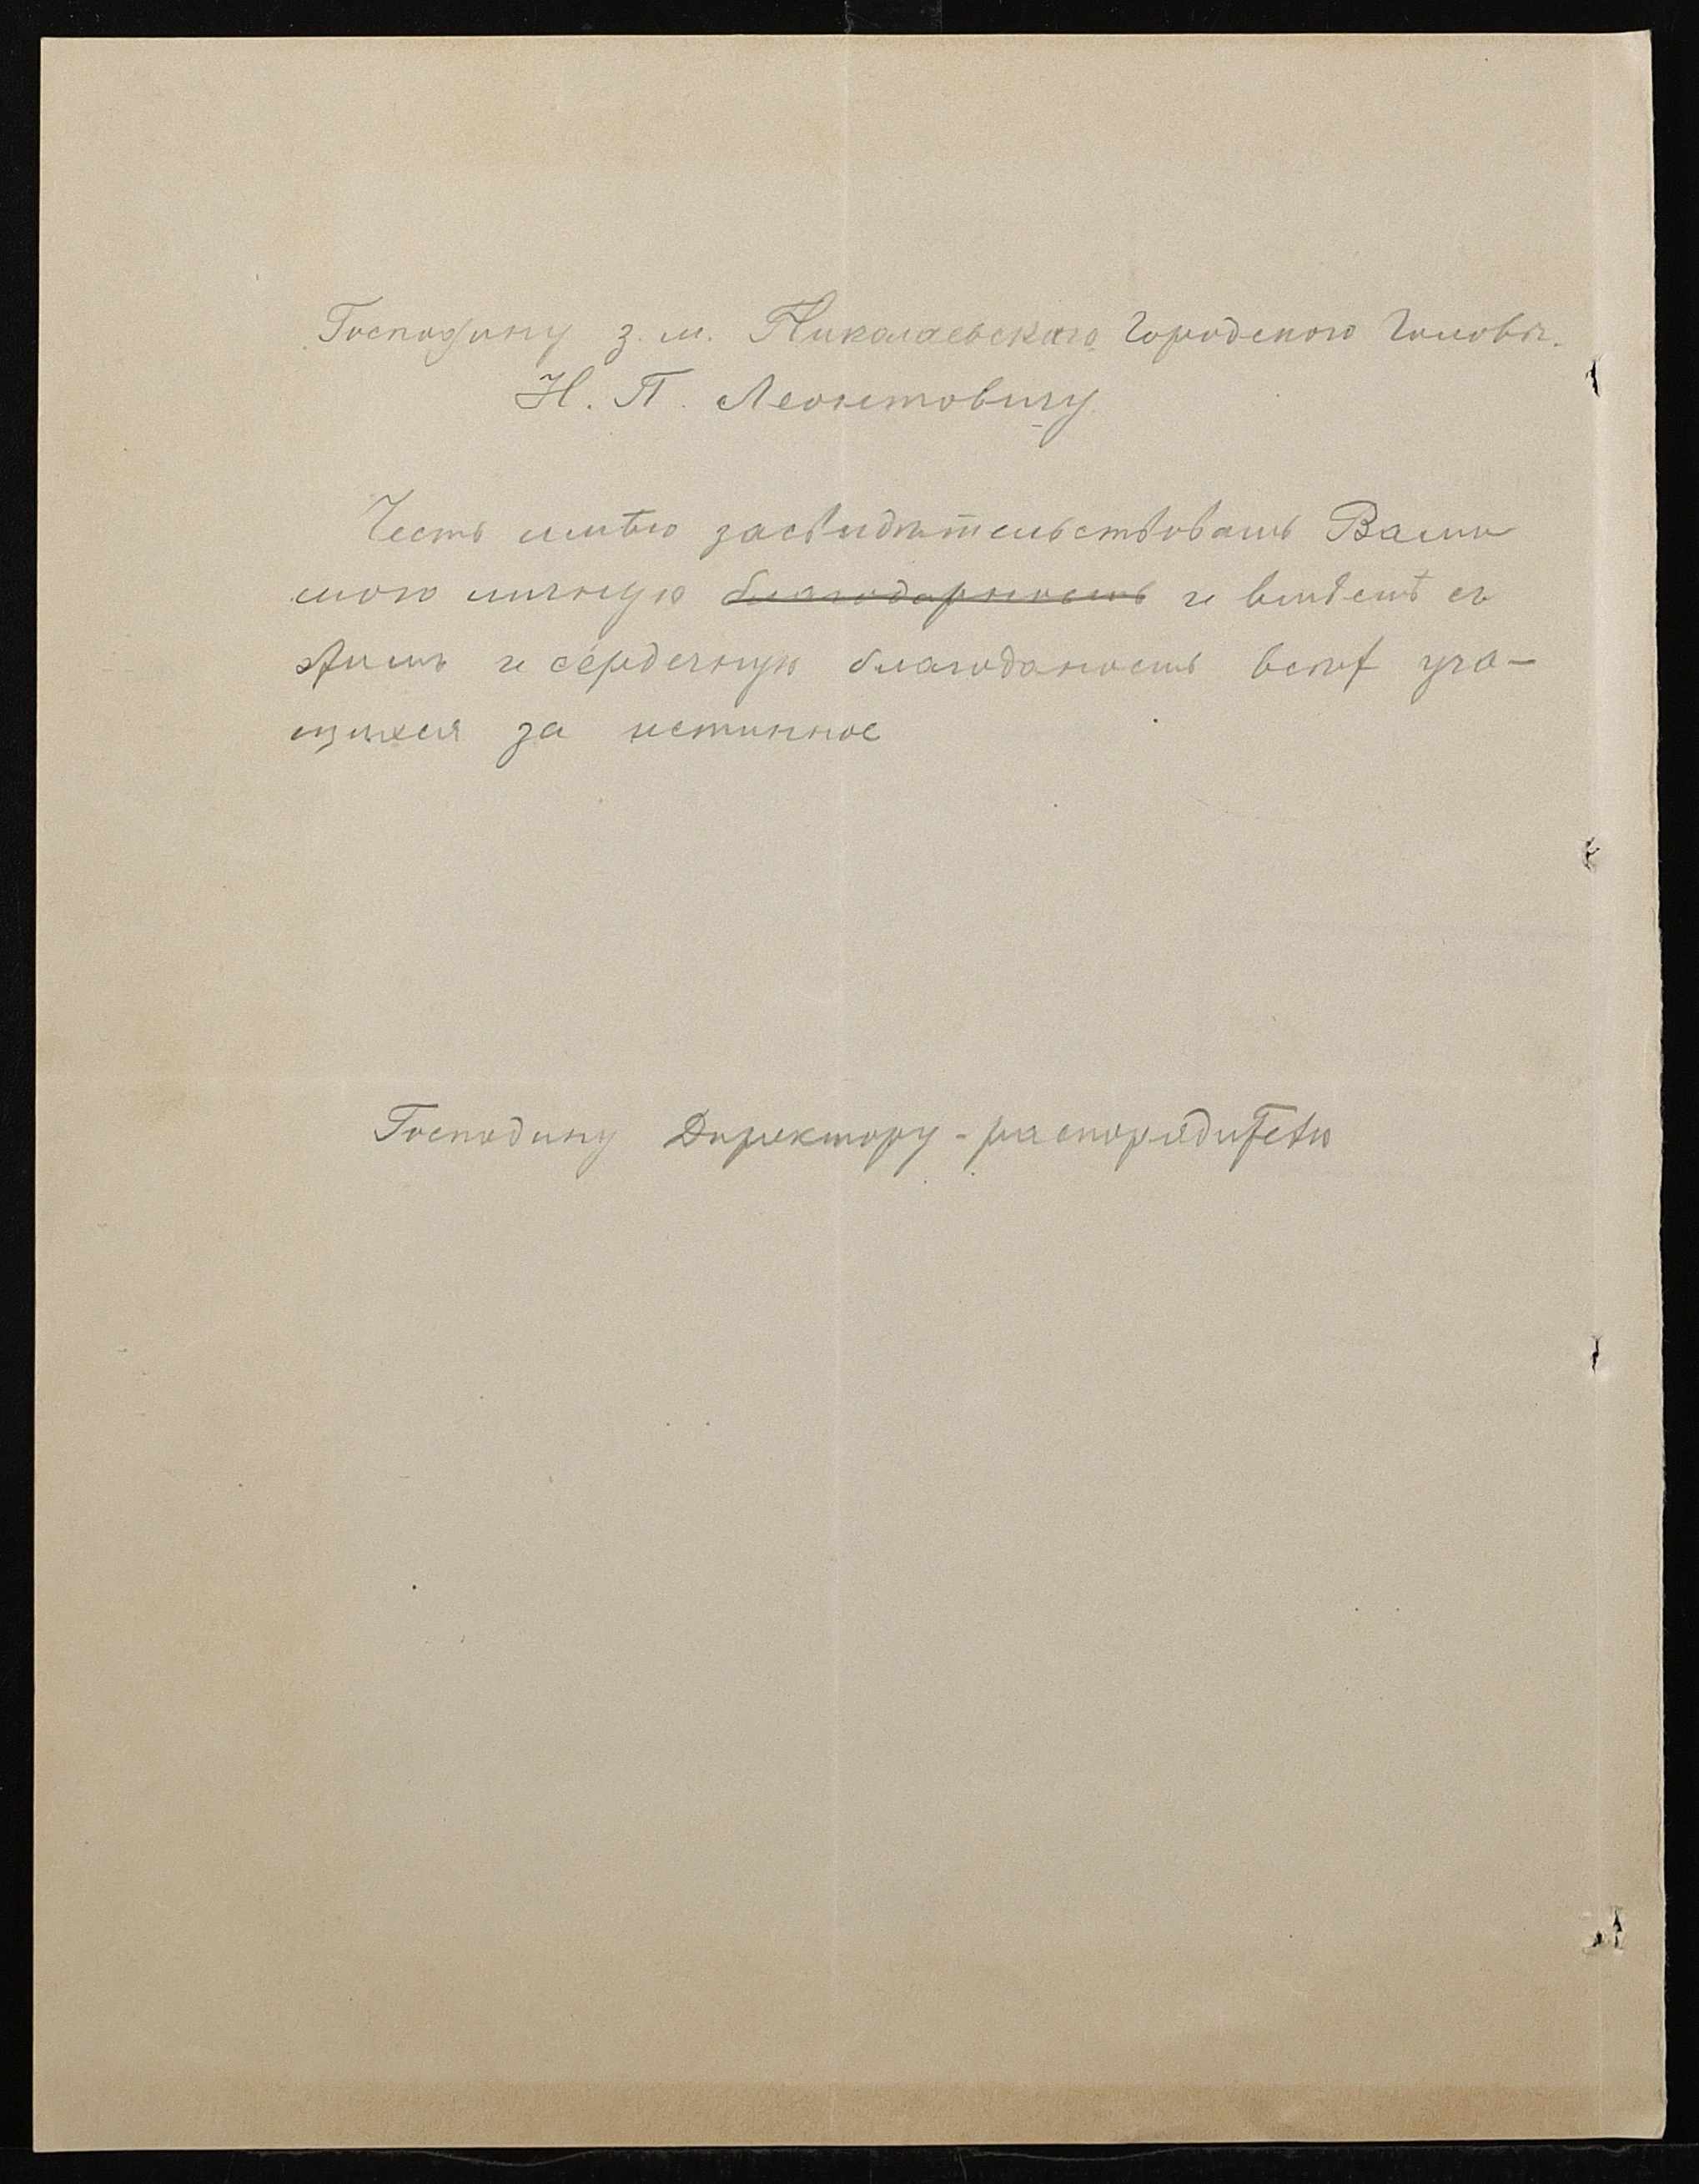 Господину з. м. Николаевскаго Городского Головы.
Н. П. Леонтовичу
Честь имѣю засвидѣтельствовать Вамъ
мою личную благодарность и вмѣстѣ съ
этимъ и сердечную благоданость всѣхъ уча-
щихся за истинное
Господину Директору-распорядителю